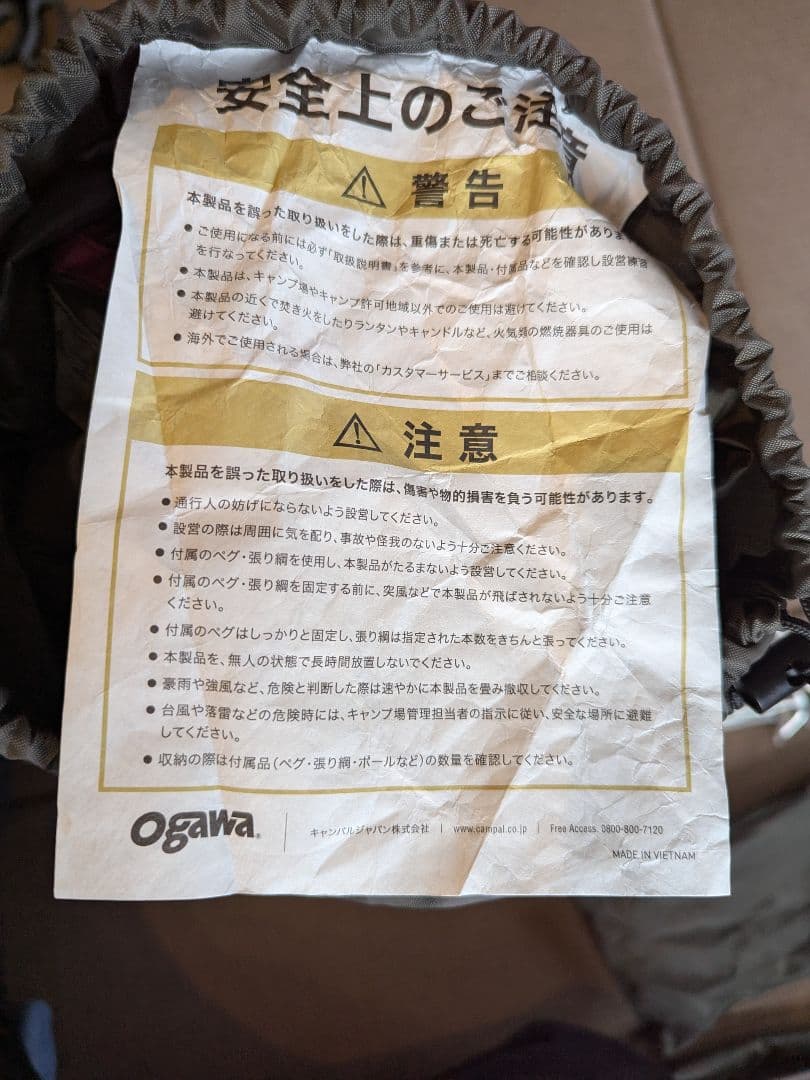 安全上のご注意
警告
本製品を誤った取り扱いをした際は、重傷または死亡する可能性がありま
● ご使用になる前には必ず「取扱説明書」を参考に、本製品・付属品などを確認し設営練習
を行なってください。
● 本製品は、キャンプ場やキャンプ許可地域以外でのご使用は避けてください。
● 本製品の近くで焚き火をしたりランタンやキャンドルなど、火気類の燃焼器具のご使用は
避けてください。
● 海外でご使用される場合は、弊社の「カスタマーサービス」までご相談ください。
注意
本製品を誤った取り扱いをした際は、傷害や物的損害を負う可能性があります。
● 通行人の妨げにならないよう設営してください。
● 設営の際は周囲に気を配り、事故や怪我のないよう十分ご注意ください。
● 付属のペグ・張り綱を使用し、本製品がたるまないよう設営してください。
● 付属のペグ・張り綱を固定する前に、突風などで本製品が飛ばされないよう十分ご注意
ください。
● 付属のペグはしっかりと固定し、張り綱は指定された本数をきちんと張ってください。
● 本製品を、無人の状態で長時間放置しないでください。
● 豪雨や強風など、危険と判断した際は速やかに本製品を畳み撤収してください。
● 台風や落雷などの危険時には、キャンプ場管理担当者の指示に従い、安全な場所に避難
してください。
● 収納の際は付属品（ペグ・張り綱・ポールなど）の数量を確認してください。
ogawa® | キャンパルジャパン株式会社 | www.campal.co.jp | Free Access. 0800-800-7120
MADE IN VIETNAM